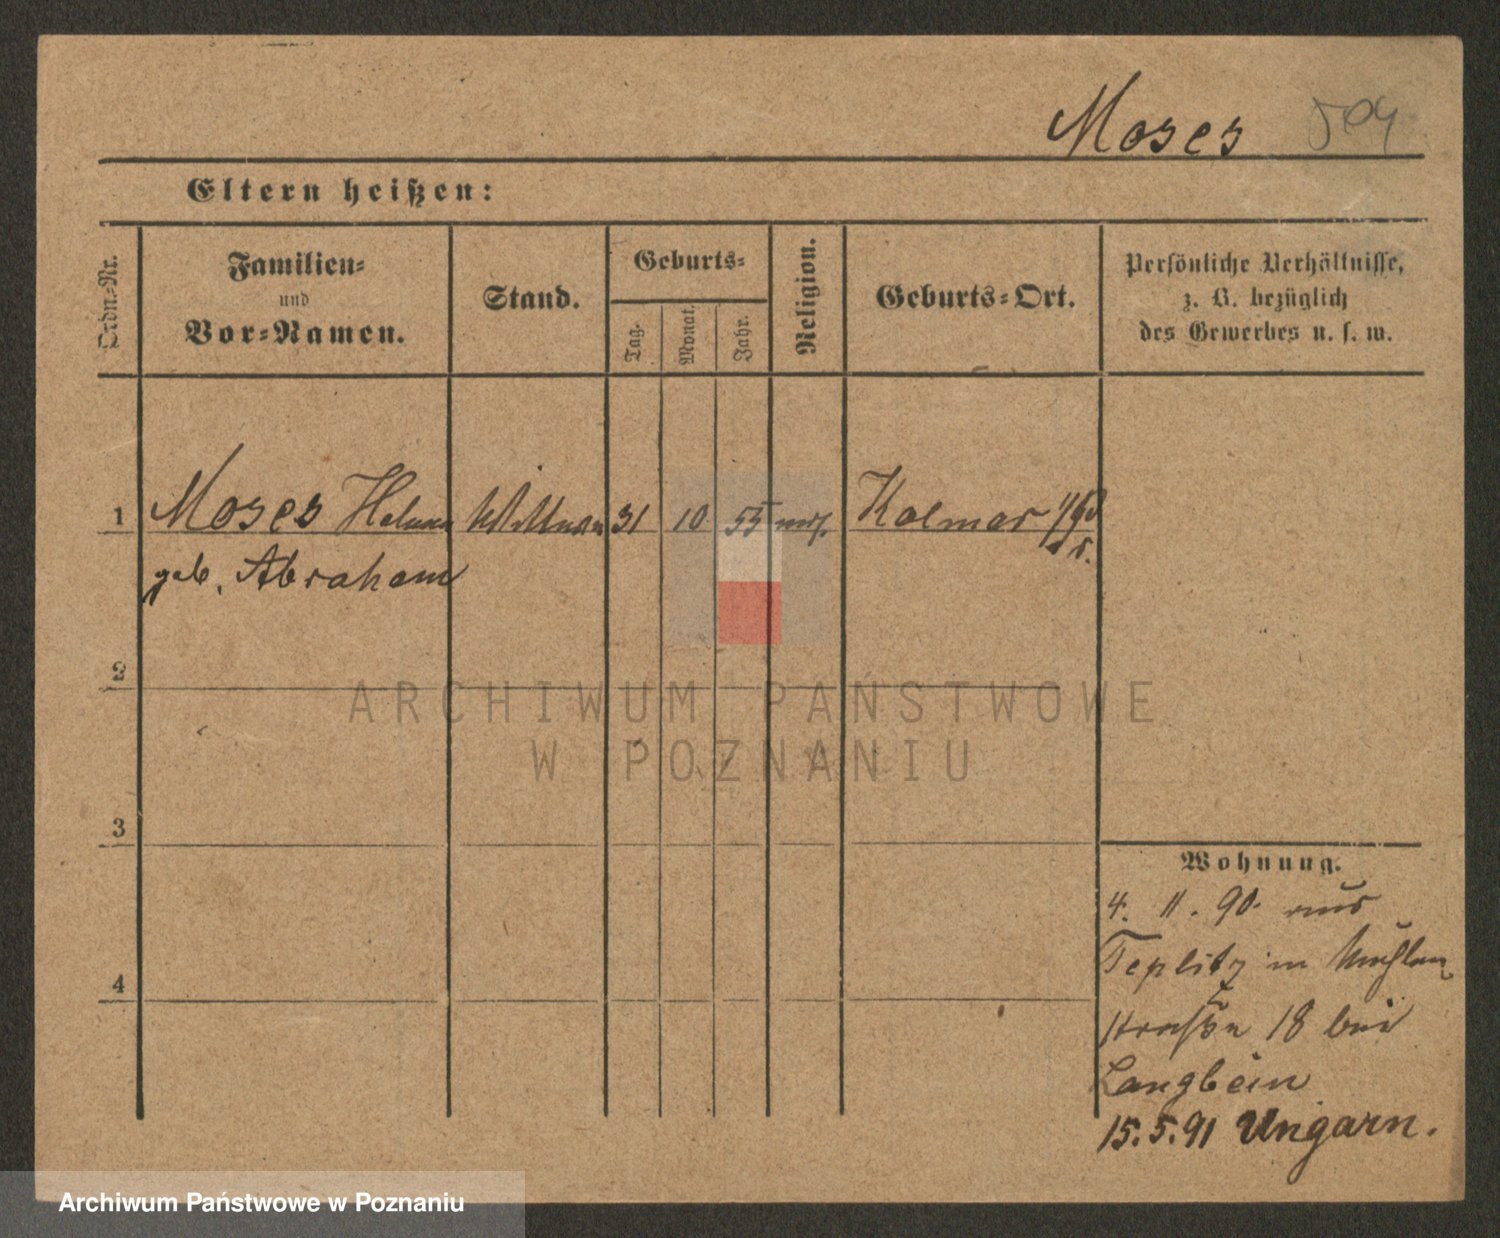 Moses 504
Eltern heißen:
Ordn.-Nr.
Familien-
und
Vor-Namen.
Stand.
Geburts-
Tag.
Monat.
Jahr.
Religion.
Geburts-Ort.
Persönliche Verhältnisse,
z. B. bezüglich
des Gewerbes u. s. w.
1 Moses Wittwe 31 10 55 mos. Kolmar
geb. Abraham
2
3
4
Wohnung.
4. 11. 90. aus
Teplitz in Mühlen
straße 18 bei
Langbein
15. 5. 91 Ungarn.
ARCHIWUM PAŃSTWOWE
W POZNANIU
Archiwum Państwowe w Poznaniu